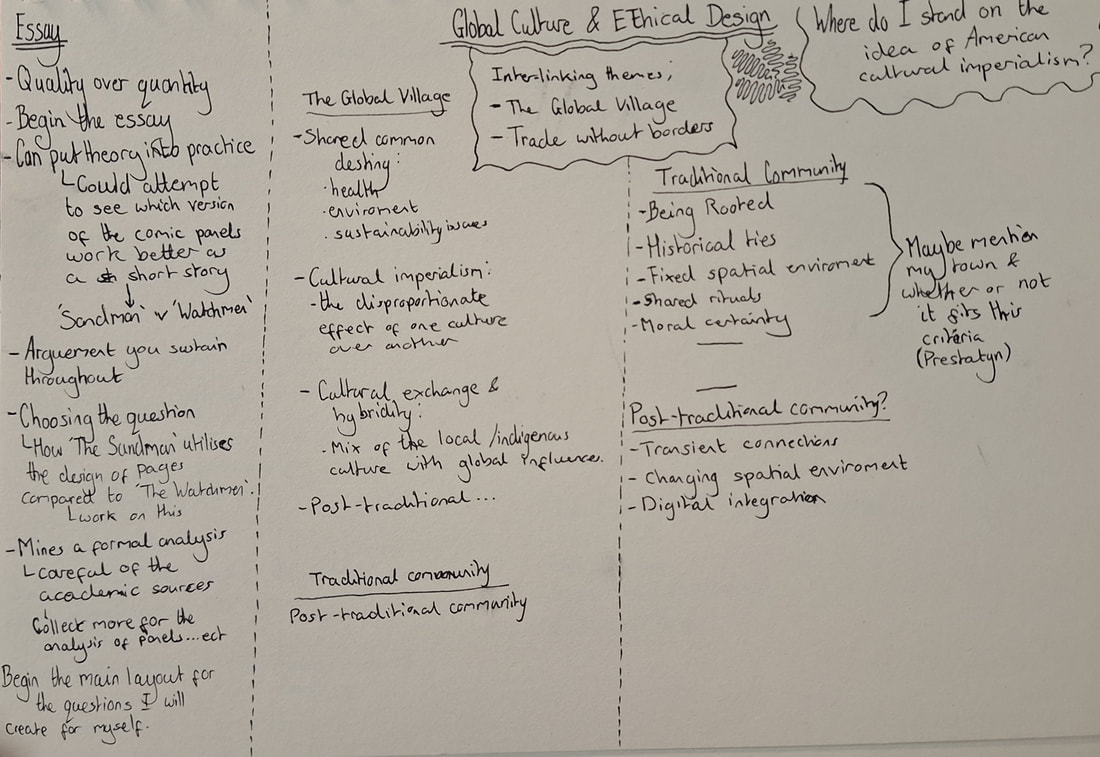 Essay
- Quality over quantity
- Begin the essay
- Can put theory into practice
Could attempt
to see which version
of the comic panels
work better as
a short story
'Sandman' v 'Watchmen'
- Arguement you sustain
throughout
- Choosing the question
How 'The Sandman' utilises
the design of pages
compared to 'The Watchmen'.
work on this
- Mines a formal analysis
careful of the
academic sources
Collect more for the
analysis of panels...ect
Begin the main layout for
the questions I will
create for myself.
Global Culture & Ethical Design
Inter-linking themes;
- The Global Village
- Trade without borders
Where do I stand on the
idea of American
cultural imperialism?
The Global Village
- Shared common
destiny:
· health
· enviroment
· sustainability issues
- Cultural imperialism:
- the disproportionate
effect of one culture
over another
- Cultural exchange &
hybridity:
· Mix of the local/indigenous
culture with global influence.
- Post-traditional...
Traditional community
Post-traditional community
Traditional Community
- Being Rooted
- Historical ties
- Fixed spatial enviroment
- Shared rituals
- Moral certainty
Maybe mention
my town &
whether or not
it fits this
criteria
(Prestatyn)
Post-traditional community?
- Transient connections
- Changing spatial enviroment
- Digital integration